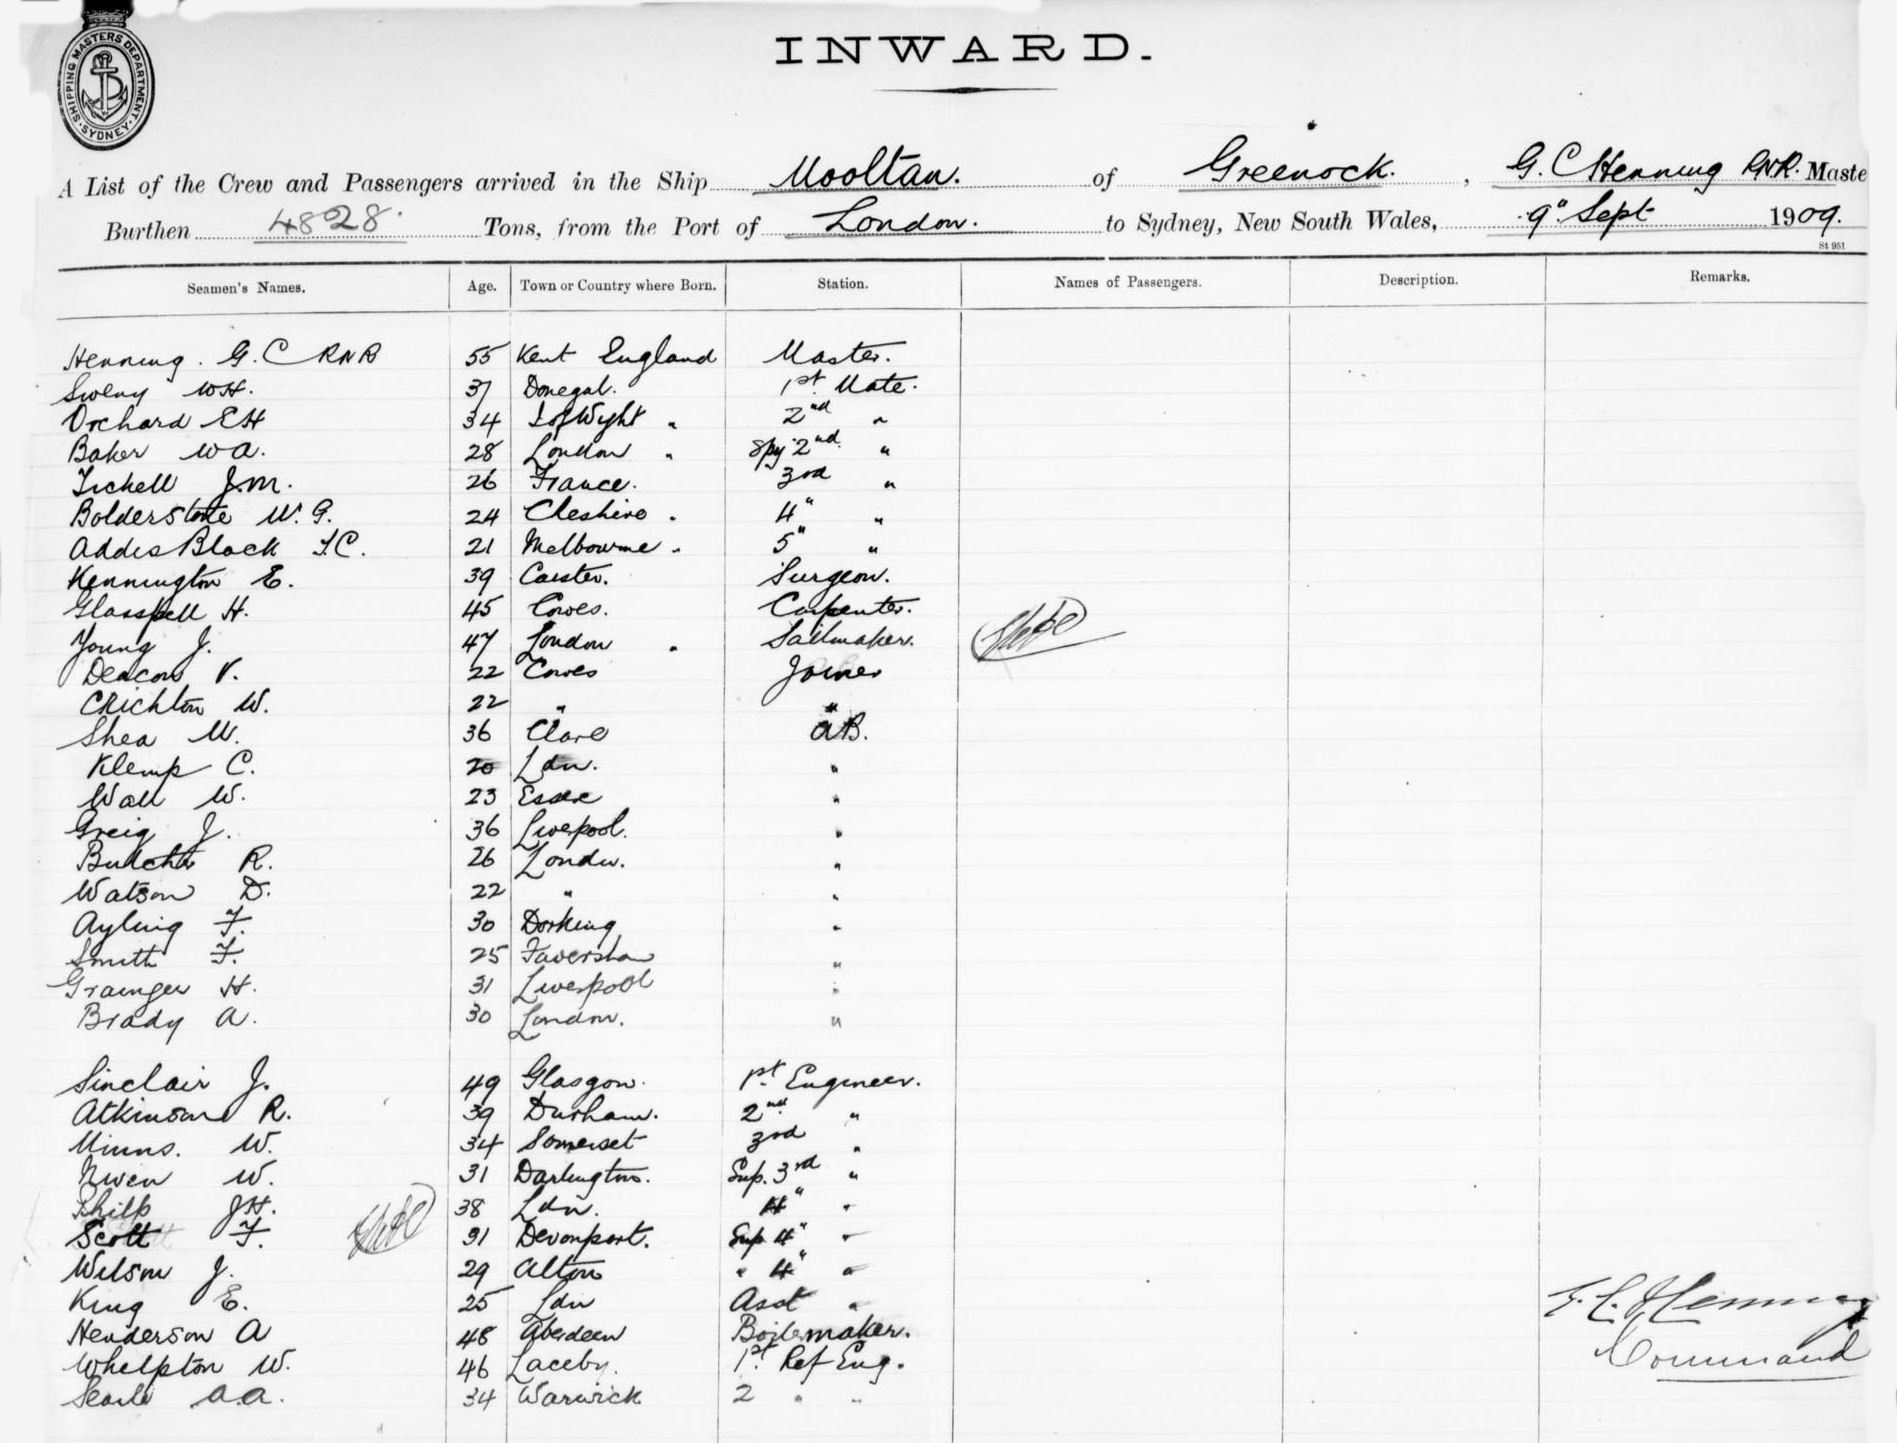 SHIPPING MASTERS DEPARTMENT
SYDNEY
INWARD.
A List of the Crew and Passengers arrived in the Ship Mooltan. of Greenock. , G. C Henning RNR. Maste
Burthen 4828. Tons, from the Port of London. to Sydney, New South Wales, 9" Sept 1909.
St 951
Seamen's Names. Age. Town or Country where Born. Station. Names of Passengers. Description. Remarks.
Henning. G. C RNR 55 Kent England Master.
Sweny WH. 37 Donegal. 1st Mate.
Orchard EH 34 I of Wight " 2nd "
Baker WA. 28 London " Spy 2nd "
Tichell J.M. 26 France. 3rd "
Bolderstone W. G. 24 Cheshire . 4" "
Addis Black T.C. 21 Melbourne . 5" "
Kennington E. 39 Caister. Surgeon.
Glasspell H. 45 Cowes. Carpenter.
Young J. 47 London . Sailmaker.
Deacon V. 22 Cowes Joiner
Crichton W. 22 " "
Shea M. 36 Clare AB.
Klemp C. 20 Ldn. "
Wall W. 23 Essex "
Greig J. 36 Liverpool. "
Butcher R. 26 London. "
Watson D. 22 " "
Ayling F. 30 Dorking "
Smith F. 25 Faversham "
Grainger H. 31 Liverpool "
Brady A. 30 London. "
Sinclair J. 49 Glasgow. 1st Engineer.
Atkinson R. 39 Durham. 2nd "
Minns. W. 34 Somerset 3rd "
W. 31 Darlington. Sup. 3rd "
Philp JH. 38 Ldn. 4" "
Scott F. 31 Devonport. Sup 4" "
Wilson J. 29 Alton " 4" "
King E. 25 Ldn Asst "
Henderson A 48 Aberdeen Boilermaker.
Whelpton W. 46 Laceby. 1st Ref Eng.
Searle A.A. 34 Warwick 2 " "
G. C. Henning
Command